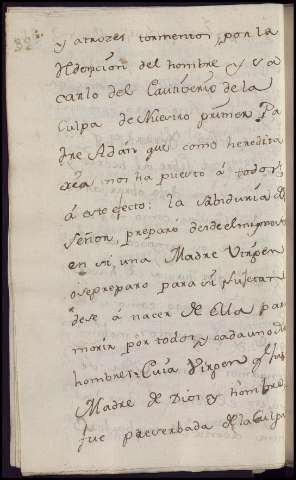 y atrozes tormentos, por la
Redempcion del hombre y sa
carlo del Cautiverio de la
Culpa de Nuestro primer Pa
dre Adán que como heredita
ria nos ha puesto á todos, y
á este efecto: la sabiduria del
Señor, preparó desde el mismo
en si, una Madre Virgen
o se preparo para si sujetan
dose á nacer de Ella pa
morir por todos, y cada uno de
hombres. Cuia Virgen q.e fue
Madre de Dios y hombre
fue preserbada de la Culpa